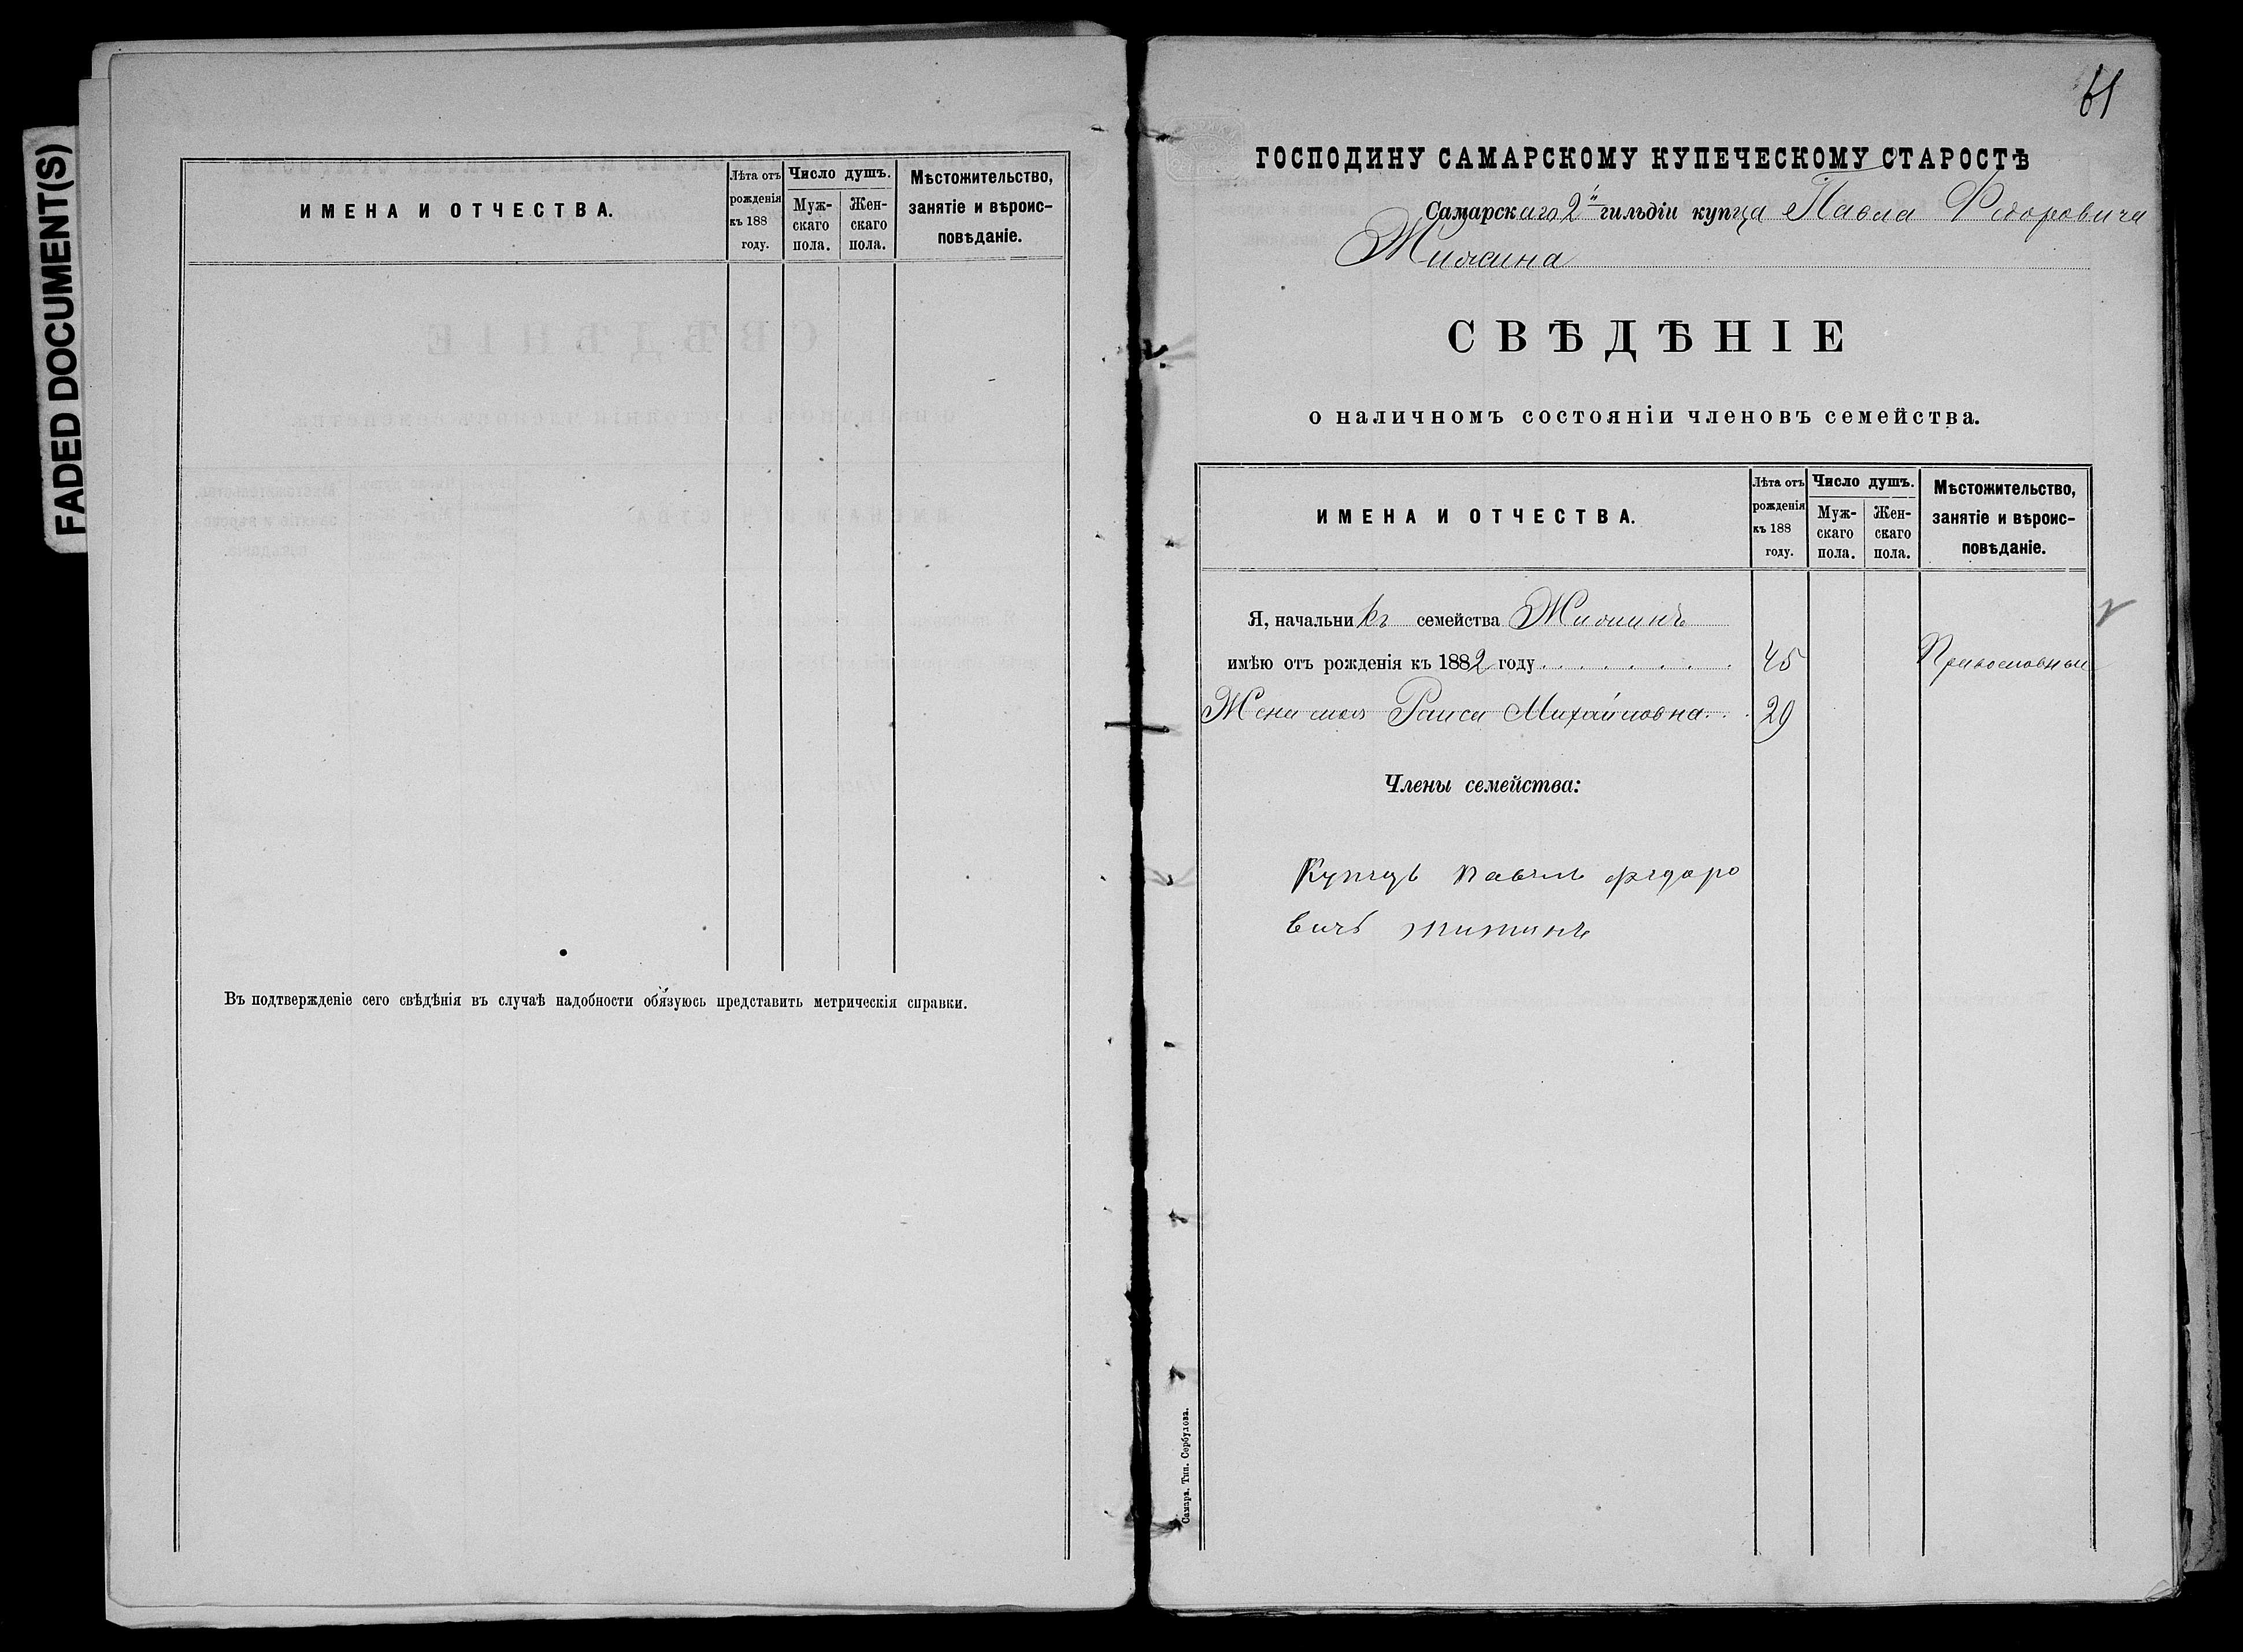 FADED DOCUMENT(S)
ИМЕНА И ОТЧЕСТВА.
Лѣта отъ рожденія къ 188 году.
Число душъ.
Муж-скаго пола.
Жен-скаго пола.
Мѣстожительство, занятіе и вѣроис-повѣданіе.
Въ подтвержденіе сего свѣдѣнія въ случаѣ надобности обязуюсь представить метрическія справки.
61
ГОСПОДИНУ САМАРСКОМУ КУПЕЧЕСКОМУ СТАРОСТѢ
Самарскаго 2й гильдіи купца Павла Федоровича
СВѢДѢНІЕ
о наличномъ состояніи членовъ семейства.
ИМЕНА И ОТЧЕСТВА.
Лѣта отъ рожденія къ 188 году.
Число душъ.
Муж-скаго пола.
Жен-скаго пола.
Мѣстожительство, занятіе и вѣроис-повѣданіе.
Я, начальникъ семейства
имѣю отъ рожденія къ 1882 году 45 Православный
Жена моя Раиса Михайловна 29
Члены семейства:
Купецъ Павелъ Федоро
вичъ
Самара. Тип. Сербулова.